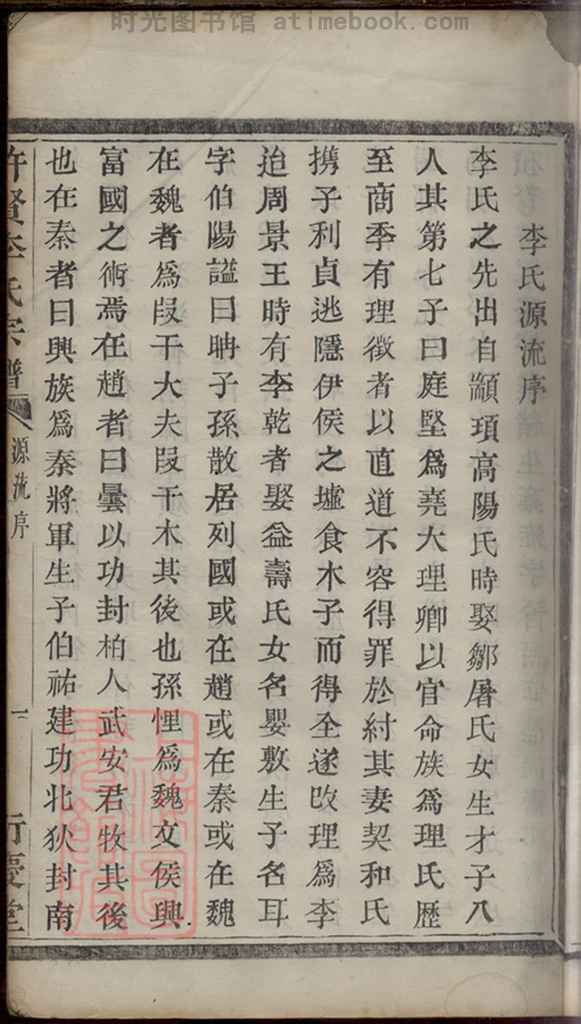 时光图书馆 atimebook.com
李氏源流序
李氏之先出自顓頊高陽氏時娶鄒屠氏女生才子八
人其第七子曰庭堅爲堯大理卿以官命族爲理氏歷
至商季有理徵者以直道不容得罪於紂其妻契和氏
携子利貞逃隱伊侯之墟食木子而得全遂改理爲李
迨周景王時有李乾者娶益壽氏女名嬰敷生子名耳
字伯陽謚曰聃子孫散居列國或在趙或在秦或在魏
在魏者爲段干大夫段干木其後也孫悝爲魏文侯興
富國之術焉在趙者曰曇以功封柏人武安君牧其後
也在秦者曰興族爲秦將軍生子伯祐建功北狄封南
許賢李氏宗譜
源流序
一
行慶堂